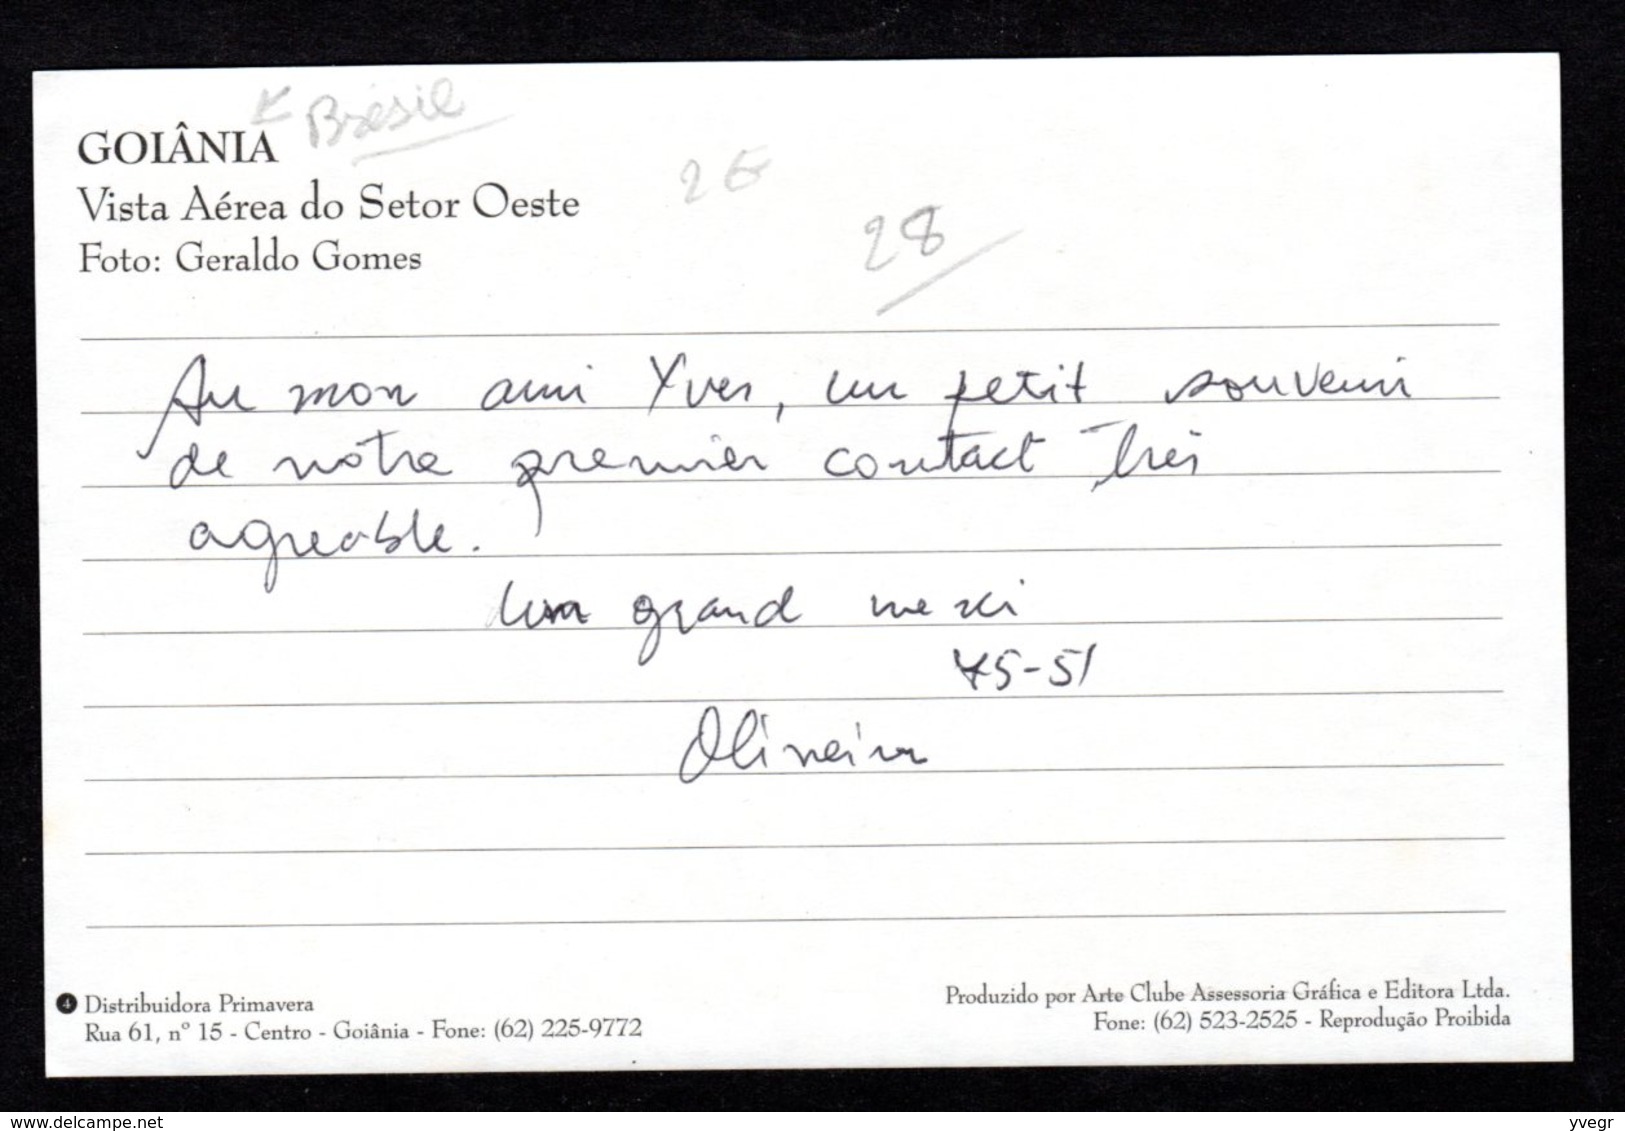 GOIÂNIA
Brésil
Vista Aérea do Setor Oeste
Foto: Geraldo Gomes
2 €
28
Au mon ami Yves, un petit souvenir
de notre premier contact très
agreable.
Un grand merci
73-51
Oliveira
4 Distribuidora Primavera
Rua 61, nº 15 - Centro - Goiânia - Fone: (62) 225-9772
Produzido por Arte Clube Assessoria Gráfica e Editora Ltda.
Fone: (62) 523-2525 - Reprodução Proibida
© delcampe.net
yvegr